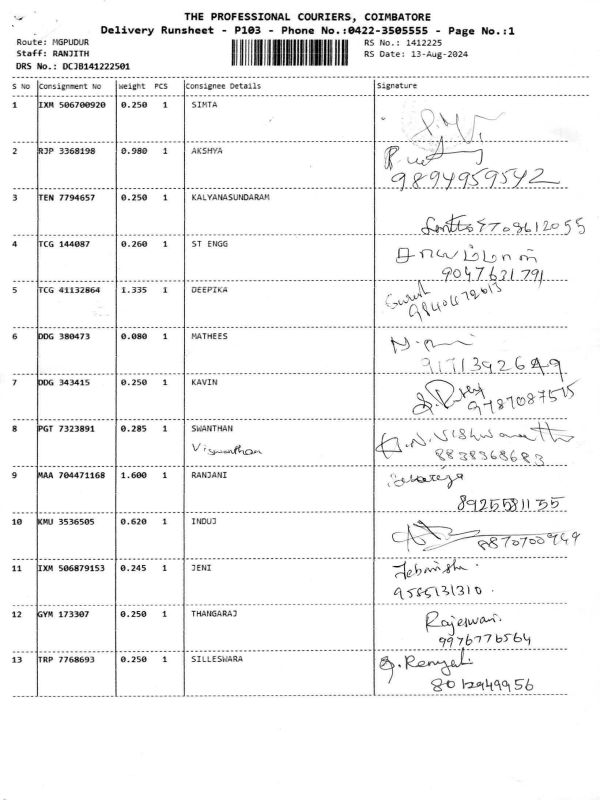 THE PROFESSIONAL COURIERS, COIMBATORE
Delivery Runsheet - P103 - Phone No.:0422-3505555 - Page No.:1
Route: MGPUDUR RS No.: 1412225
Staff: RANJITH RS Date: 13-Aug-2024
DRS No.: DCJB141222501
S No Consignment No Weight PCS Consignee Details Signature
1 IXM 506700920 0.250 1 SIMTA
2 RJP 3368198 0.980 1 AKSHYA
9894959542
3 TEN 7794657 0.250 1 KALYANASUNDARAM
4 TCG 144087 0.260 1 ST ENGG
9047631791
5 TCG 41132864 1.335 1 DEEPIKA
Suresh
6 DDG 380473 0.080 1 MATHEES
9171392649
7 DDG 343415 0.250 1 KAVIN
9787087515
8 PGT 7323891 0.285 1 SWANTHAN
Viswanthan
8838368683
9 MAA 704471168 1.600 1 RANJANI
8925581155
10 KMU 3536505 0.620 1 INDUJ
8870700949
11 IXM 506879153 0.245 1 JENI
9585131310.
12 GYM 173307 0.250 1 THANGARAJ
Rajeswari.
9976776564
13 TRP 7768693 0.250 1 SILLESWARA
8012949956